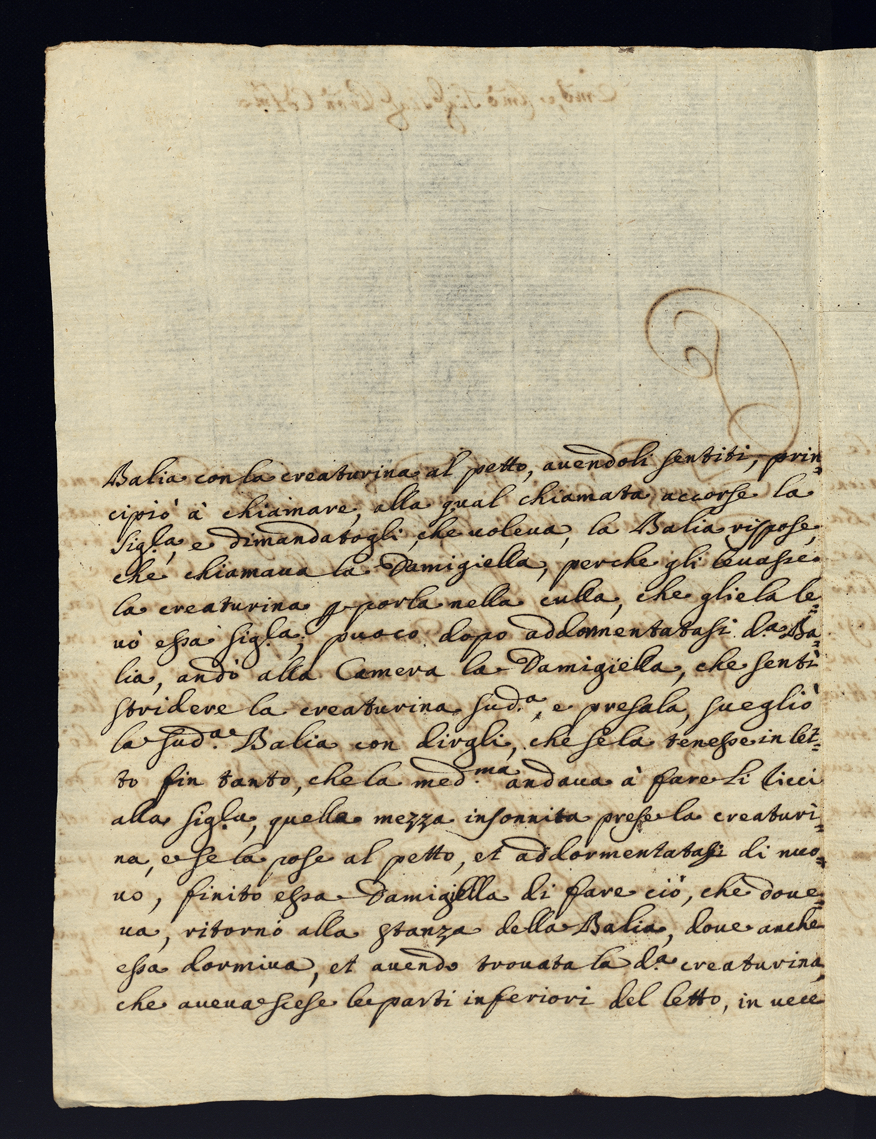 Balia con la creaturina al petto, auendoli sentiti, prin=
cipiò à chiamare, alla qual chiamata accorse la
Sig.ra, e dimandatogli che uoleua, la Balia rispose,
che chiamaua la Damigiella, perche gli leuasse
la creaturina p porla nella culla, che gliela le=
uò essa Sig.ra, puoco dopo addormentatasi d.a Ba=
lia, andò alla Camera la Damigiella, che sentì
stridere la creaturina sud.a, e presala, suegliò
la sud.a Balia con dirgli, che se la tenesse in let=
to fin tanto, che la med.ma andaua à fare li ricci
alla Sig.ra, quella mezza insonnita prese la creaturi=
na, e se la pose al petto, et addormentatasi di nuo=
uo, finito essa Damigiella di fare ciò, che doue=
ua, ritornò alla stanza della Balia, doue anche
essa dormiua, et auendo trouata la d.a creaturina,
che aueua scese le parti inferiori del letto, in uece